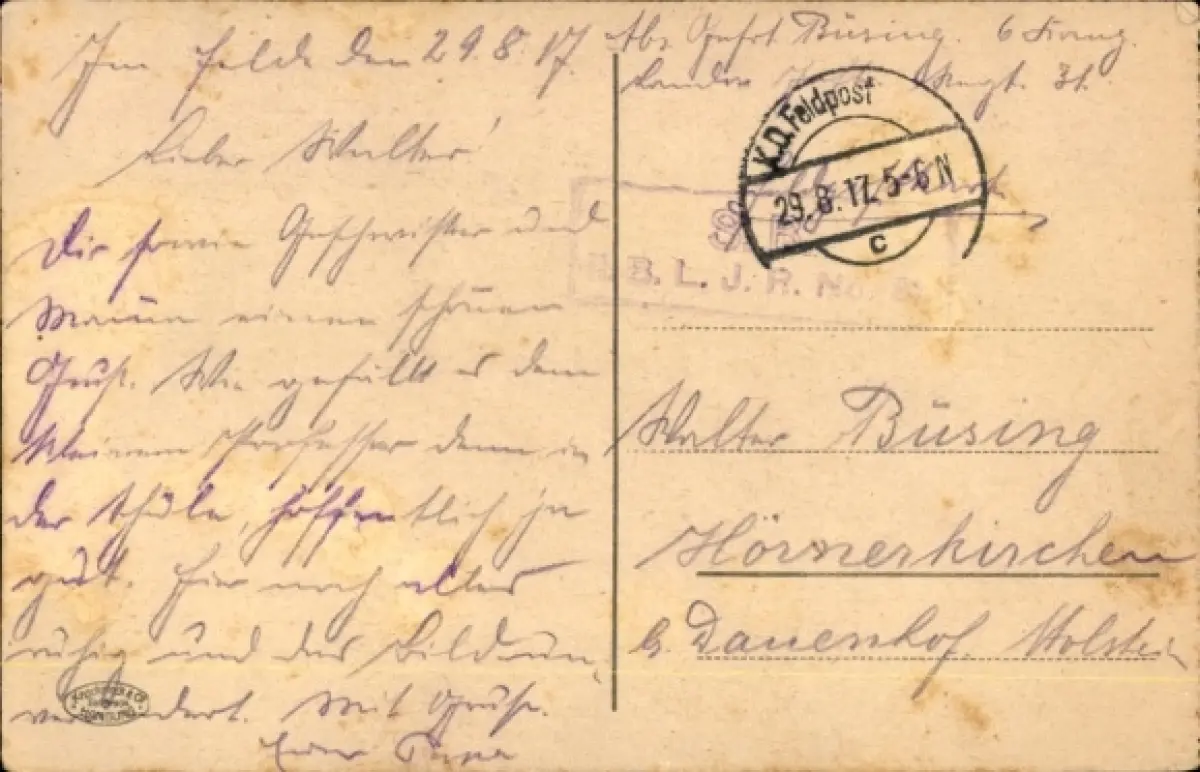 Im Felde den 29.8.17.
Lieber Walter!
Dir sowie Geschwister und
Mama einen schönen
Gruß. Wie gefällt es dem
kleinen Professor denn in
der Schule, hoffentlich ja
gut. Hier noch alles
ruhig und das Bild un
verändert. Mit Gruß.
Euer Papa
Abs. Gefrt Büsing. 6 Komp.
Landw. Regt. 31.
K.D. Feldpost
29.8.17. 5-6 N
c
B. L. J. R. No.
Walter Büsing
Hörnerkirchen
b. Dauenhof. Holstein